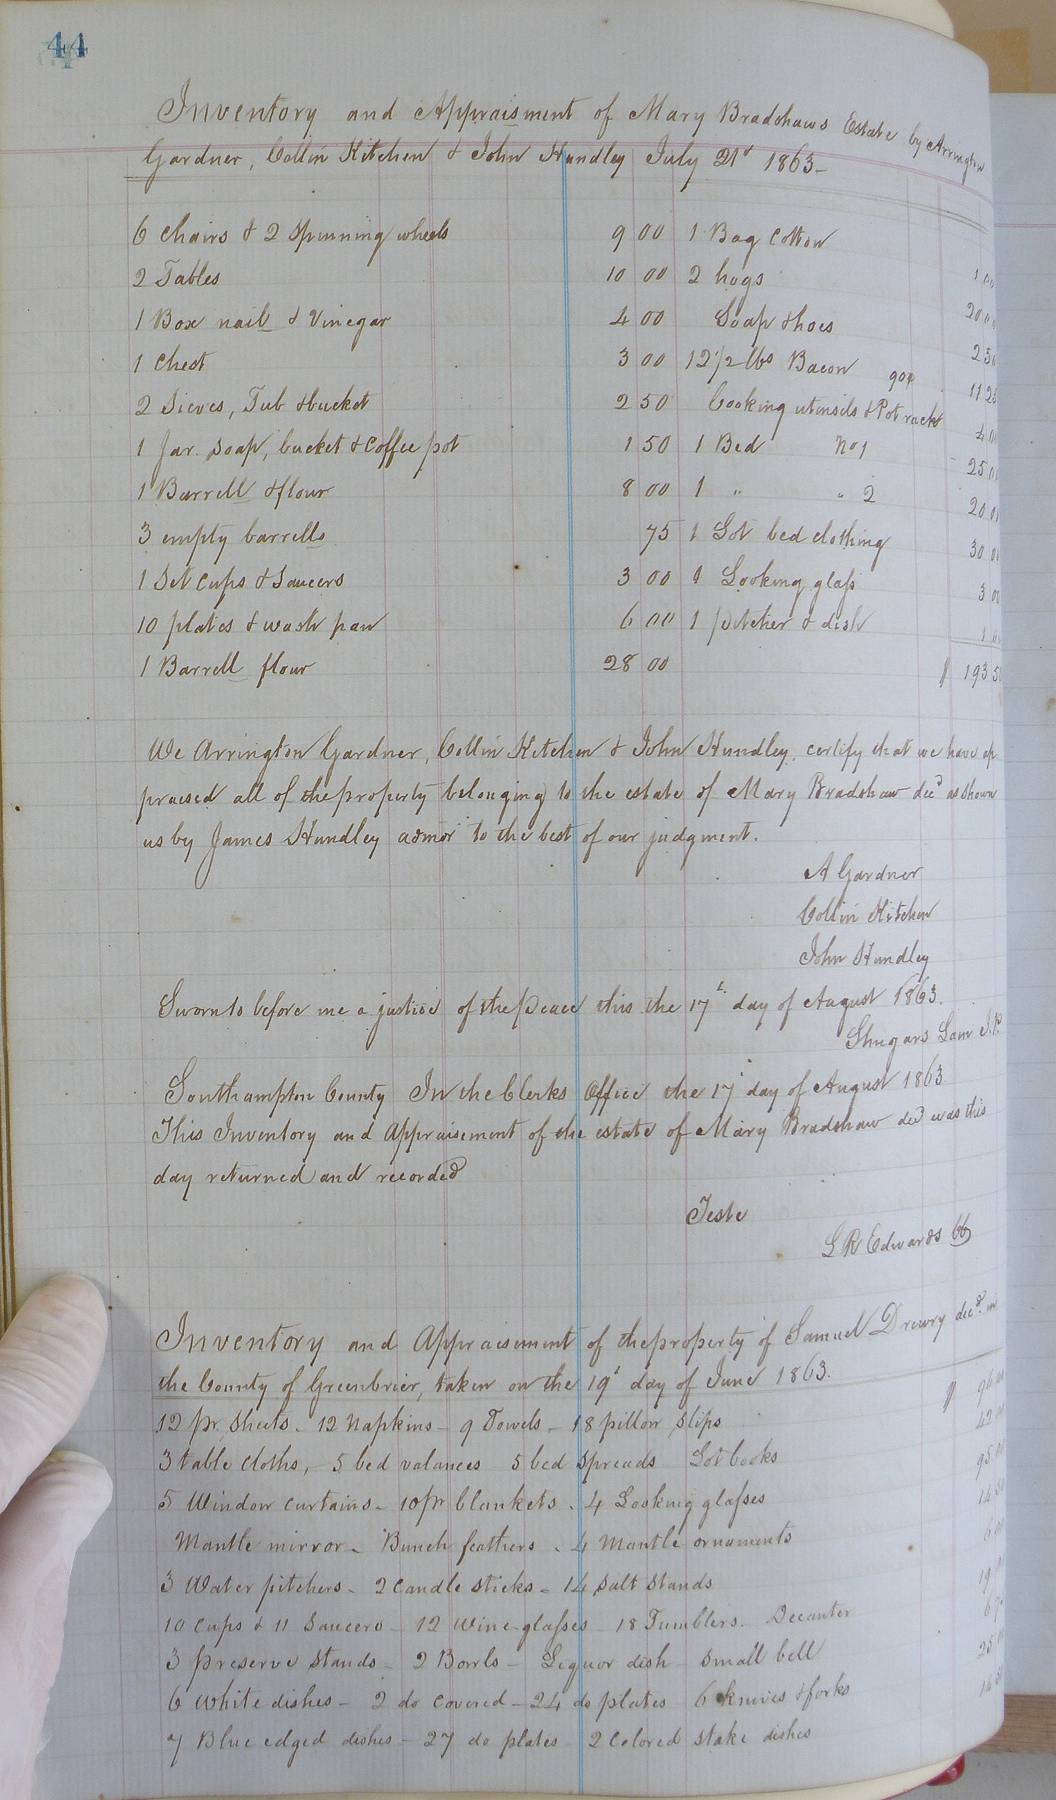 44
Inventory and Appraisment of Mary Bradshaws Estate by Arrington
Gardner, Collin Kitchen & John Hundley July 21st 1863-
6 chairs & 2 Spinning wheels 9 00 1 Bag Cotton
2 Tables 10 00 2 hogs 1 00
1 Box nails & Vinegar 4 00 Soap & hoes 20 00
1 Chest 3 00 12 1/2 lbs Bacon 90¢ 2 50
2 Sieves, Tub & bucket 2 50 Cooking utensils & Pot rack 11 25
1 Jar. Soap, bucket & Coffee pot 1 50 1 Bed No 1 4 00
1 Barrell & flour 8 00 1 " " 2 25 00
3 empty barrells 75 1 Lot bed clothing 20 00
1 Set Cups & Saucers 3 00 1 Looking glass 30 00
10 plates & wash pan 6 00 1 pitcher & dish 3 00
1 Barrell flour 28 00 1 00
$ 193 50
We Arrington Gardner, Collin Kitchen & John Hundley, certify that we have ap
praised all of the property belonging to the estate of Mary Bradshaw decd as shown
us by James Hundley admor to the best of our judgment.
A Gardner
Collin Kitchen
John Hundley
Sworn to before me a justice of the peace this the 17th day of August 1863.
J.P.
Southampton County In the Clerks Office the 17 day of August 1863
This Inventory and Appraisement of the estate of Mary Bradshaw decd was this
day returned and recorded
Teste
L R Edwards CC
Inventory and Appraisement of the property of Samuel Drewry decd. in
the County of Greenbrier, taken on the 19th day of June 1863.
12 pr. Sheets - 12 Napkins - 9 Towels - 18 pillow slips $
3 table cloths, 5 bed valances 5 bed Spreads Lot books 42
5 Window curtains - 10 pr blankets - 4 Looking glasses 95
Mantle mirror - Bunch feathers - 4 Mantle ornaments 14
3 Water pitchers - 2 Candle sticks - 14 Salt Stands 6
10 Cups & 11 Saucers - 12 Wine glasses - 18 Tumblers. Decanter 19
3 preserve stands - 2 Bowls - Liquor dish - small bell 6
6 White dishes - 2 do covered - 24 do plates 6 knives & forks 25
7 Blue edged dishes - 27 do plates - 2 Colored stake dishes